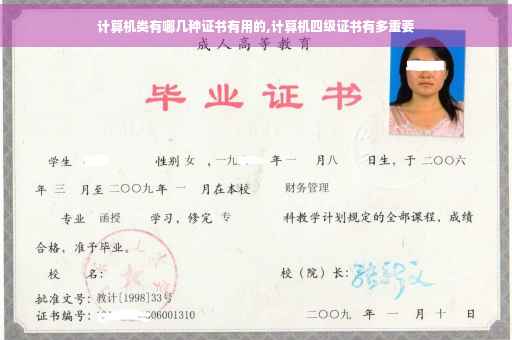 计算机类有哪几种证书有用的,计算机四级证书有多重要
成人高等教育
毕业证书
学生 性别 女 ,一九 年 一 月八 日生，于 二〇〇六
年 三 月至 二〇〇九 年 一 月在本校 财务管理
专业 函授 学习，修完 专 科教学计划规定的全部课程，成绩
合格，准予毕业。
校 名： 校（院）长：
批准文号：教计[1998]33号
证书编号： 06001310 二〇〇九 年 一 月 十 日